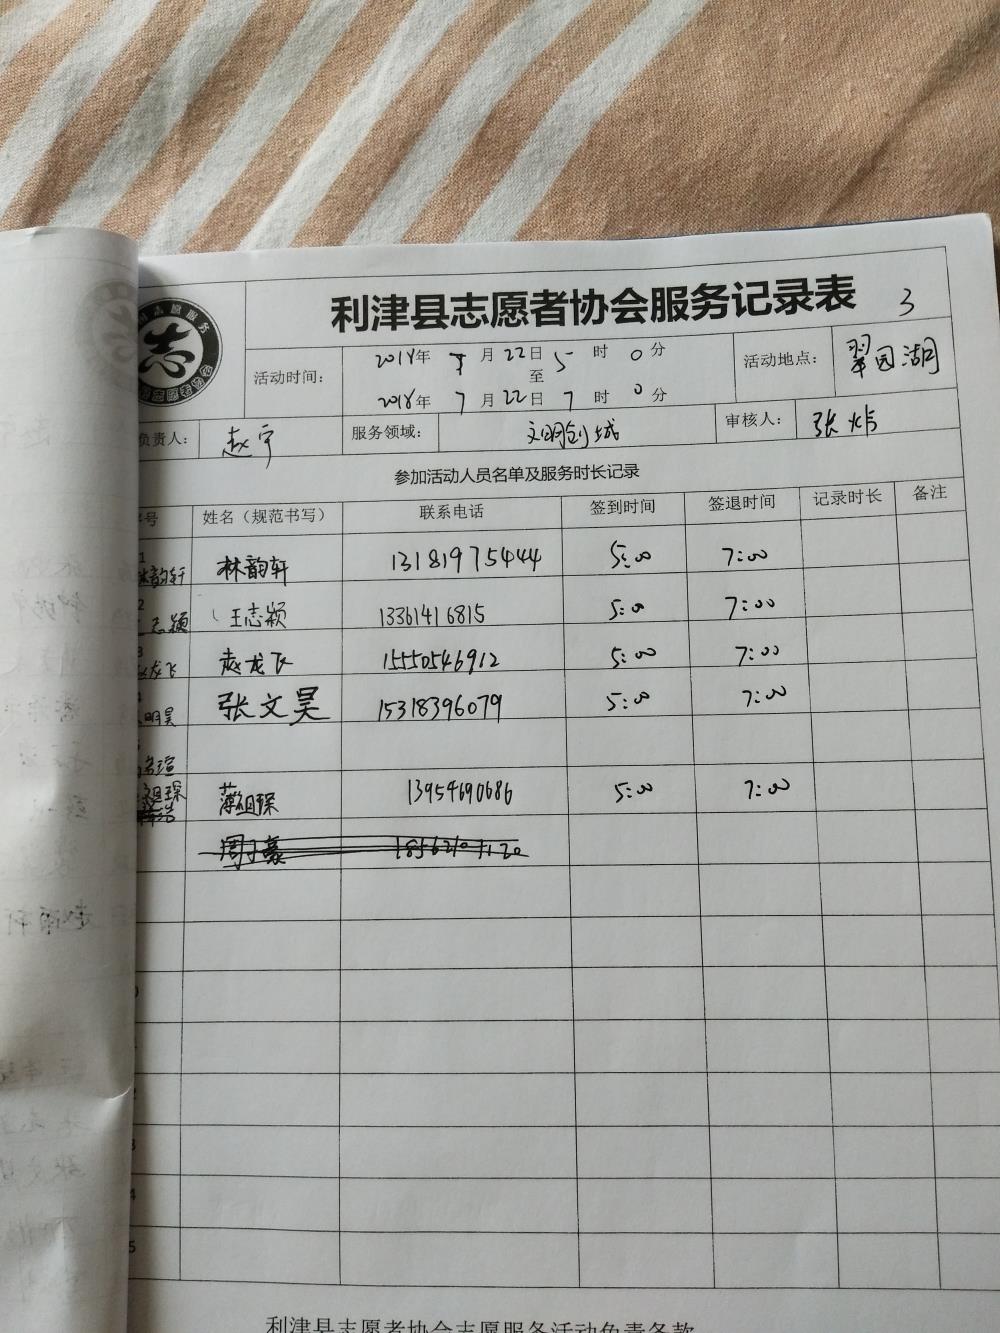 利津县志愿者协会服务记录表 3
活动时间： 2018年 7月22日 5时 0分
至
2018年 7月22日 7时 0分
活动地点： 翠园湖
负责人： 赵宇 服务领域： 文明创城 审核人： 张炜
参加活动人员名单及服务时长记录
号 姓名（规范书写） 联系电话 签到时间 签退时间 记录时长 备注
1 林韵轩 林韵轩 13181975444 5:00 7:00
2 志颖 王志颖 13361416815 5:00 7:00
龙飞 赵龙飞 15550546912 5:00 7:00
明昊 张文昊 15318396079 5:00 7:00
名瑄
祖琛 祖琛 13954690686 5:00 7:00
周子豪
3
4
5
利津县志愿者协会志愿服务活动免责条款